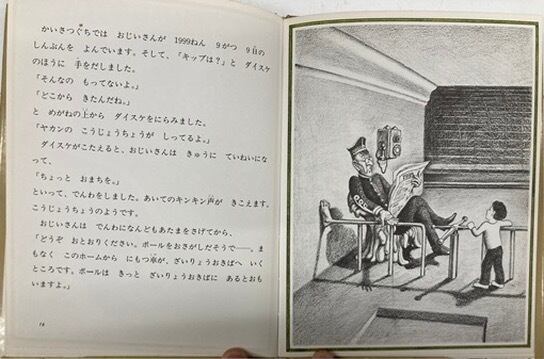 かいさつぐちでは　おじいさんが　1999ねん　９がつ　９日の
しんぶんを　よんでいます。そして、「キップは？」と　ダイスケ
のほうに　手をだしました。
「そんなの　もってないよ。」
「どこから　きたんだね。」
と　めがねの上から　ダイスケをにらみました。
「ヤカンの　こうじょうちょうが　しってるよ。」
ダイスケがこたえると、おじいさんは　きゅうに　ていねいにな
って、
「ちょっと　おまちを。」
といって、でんわをしました。あいてのキンキン声が　きこえます。
こうじょうちょうのようです。
おじいさんは　でんわになんどもあたまをさげてから、
「どうぞ　おとおりください。ボールをおさがしだそうで──。ま
もなく　このホームから　にもつ車が、ざいりょうおきばへ　いく
ところです。ボールは　きっと　ざいりょうおきばに　あるとおも
いますよ。」
18